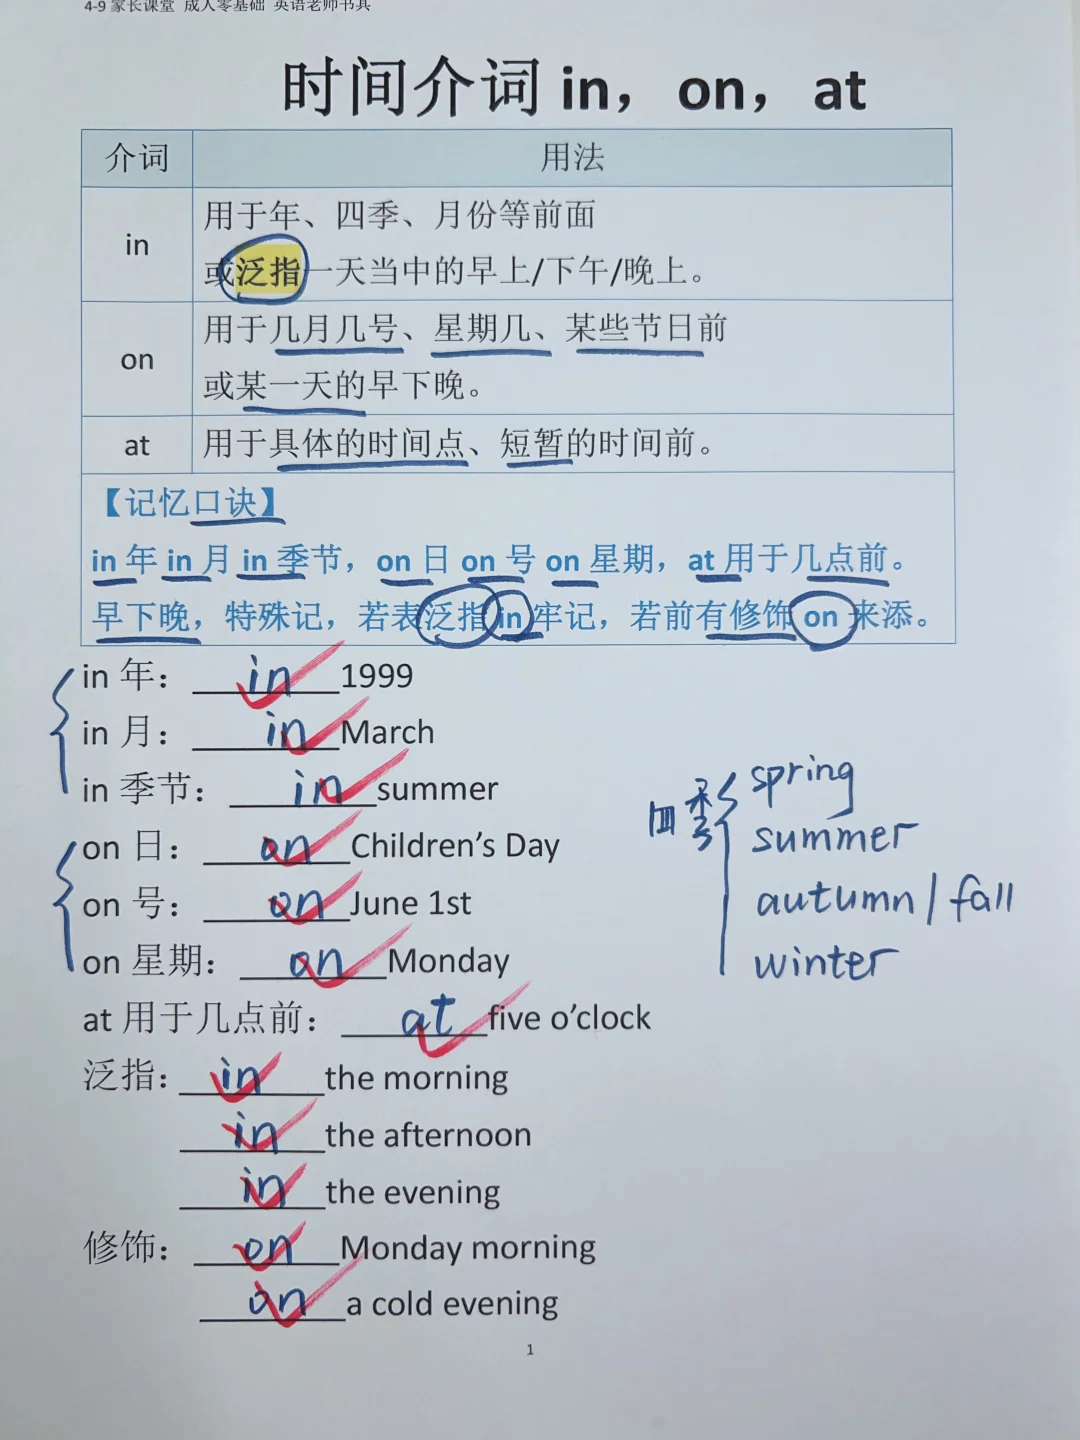 4-9 家长课堂 成人零基础 英语老师书具
时间介词 in，on，at
介词 用法
in 用于年、四季、月份等前面
或泛指一天当中的早上/下午/晚上。
on 用于几月几号、星期几、某些节日前
或某一天的早下晚。
at 用于具体的时间点、短暂的时间前。
【记忆口诀】
in 年 in 月 in 季节，on 日 on 号 on 星期，at 用于几点前。
早下晚，特殊记，若表泛指 in 牢记，若前有修饰 on 来添。
in 年：in 1999
in 月：in March
in 季节：in summer
on 日：on Children’s Day
on 号：on June 1st
on 星期：on Monday
at 用于几点前：at five o’clock
泛指：in the morning
in the afternoon
in the evening
修饰：on Monday morning
on a cold evening
四季
spring
summer
autumn/fall
winter
1